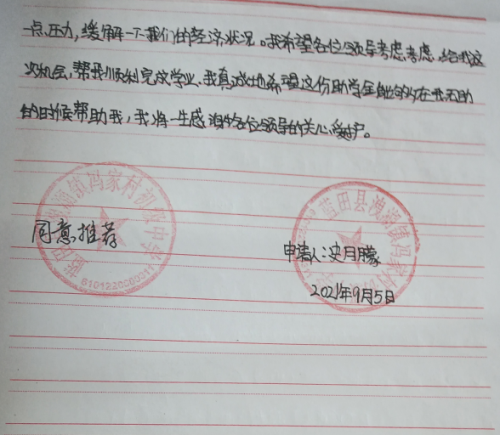 一点压力，缓解一下我们的经济状况。我希望各位领导考虑考虑，给我这
次机会，帮我顺利完成学业，我真诚地希望这份助学金能够在我无助
的时候帮助我，我将一生感谢各位领导的关心爱护。
同意推荐
申请人：史月朦
2021年9月5日
蓝田县洩湖镇冯家村初级中学
6101220000011
蓝田县洩湖镇冯家村